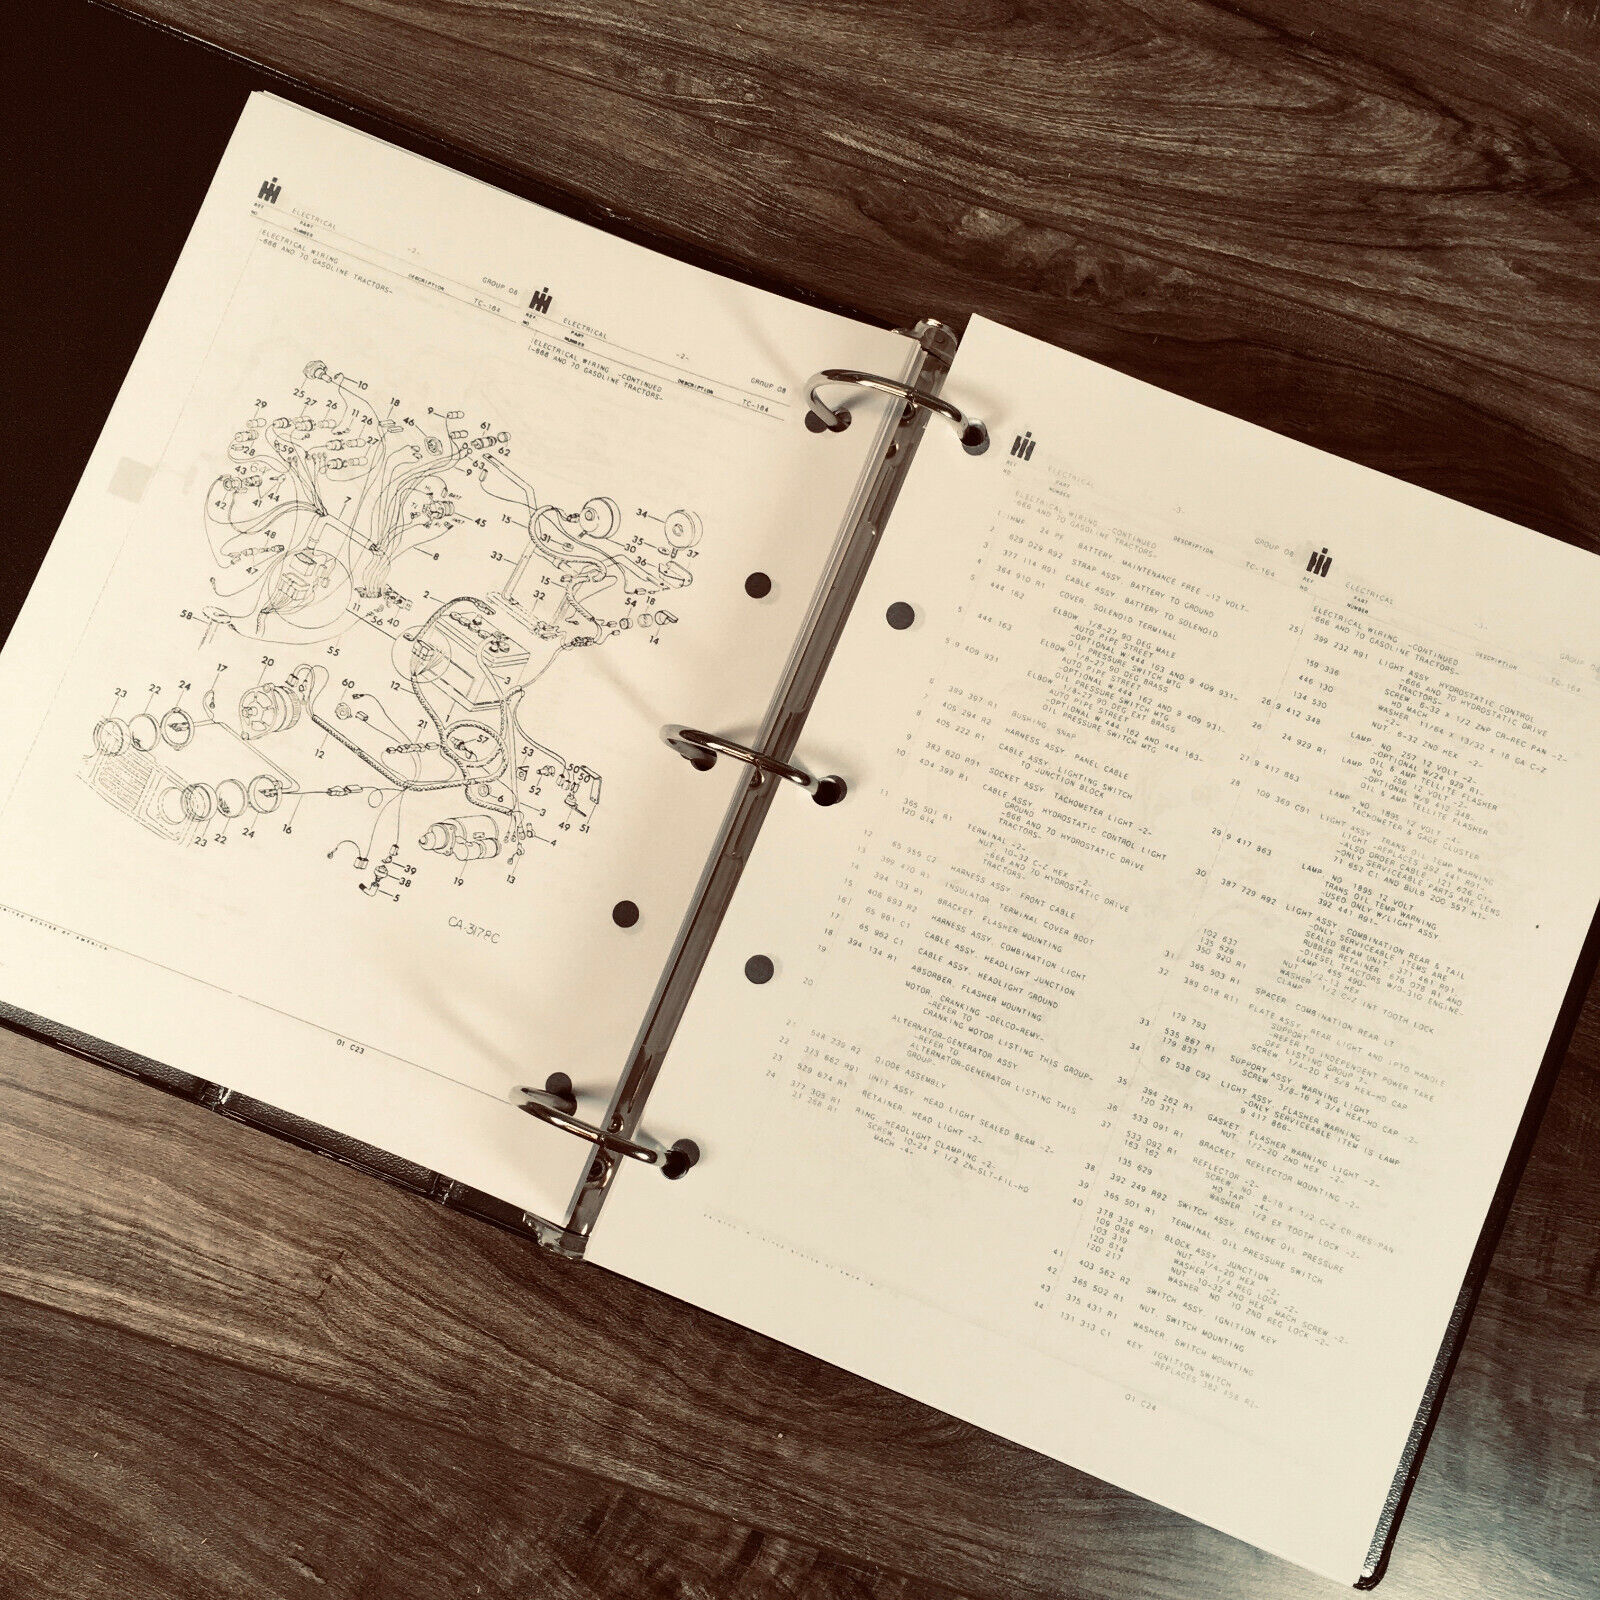 ELECTRICAL
REF NO
PART NUMBER
-2-
DESCRIPTION
GROUP 08
TC-164
ELECTRICAL WIRING
-666 AND 70 GASOLINE TRACTORS-
ELECTRICAL
REF NO
PART NUMBER
-2-
DESCRIPTION
GROUP 08
TC-164
ELECTRICAL WIRING -CONTINUED
-666 AND 70 GASOLINE TRACTORS-
CA-3178C
UNITED STATES OF AMERICA
01 C23
ELECTRICAL
REF NO
PART NUMBER
-3-
DESCRIPTION
GROUP 08
TC-164
ELECTRICAL WIRING -CONTINUED
-666 AND 70 GASOLINE TRACTORS-
24 PF BATTERY MAINTENANCE FREE -12 VOLT-
2 629 029 R92 STRAP ASSY, BATTERY TO GROUND
3 377 114 R91 CABLE ASSY BATTERY TO SOLENOID
4 364 910 R1 COVER SOLENOID TERMINAL
5 444 162 ELBOW 1/8-27 90 DEG MALE
AUTO PIPE STREET
-OPTIONAL W 444 163 AND 9 409 931-
OIL PRESSURE SWITCH MTG
5 444 163 ELBOW 1/8-27 90 DEG BRASS
AUTO PIPE STREET
-OPTIONAL W 444 162 AND 9 409 931-
OIL PRESSURE SWITCH MTG
5 9 409 931 ELBOW 1/8-27 90 DEG EXT BRASS
AUTO PIPE STREET
-OPTIONAL W 444 162 AND 444 163-
OIL PRESSURE SWITCH MTG
6 399 397 R1 BUSHING, SNAP
7 405 294 R2 HARNESS ASSY, PANEL CABLE
8 405 222 R1 CABLE ASSY, LIGHTING SWITCH
TO JUNCTION BLOCK
9 383 620 R91 SOCKET ASSY TACHOMETER LIGHT -2-
10 404 399 R1 CABLE ASSY HYDROSTATIC CONTROL LIGHT
GROUND
-666 AND 70 HYDROSTATIC DRIVE
TRACTORS-
11 365 501 R1 TERMINAL -2-
120 614 NUT, 10-32 C-Z HEX -2-
-666 AND 70 HYDROSTATIC DRIVE
TRACTORS-
12 65 956 C2 HARNESS ASSY, FRONT CABLE
13 399 470 R1 INSULATOR TERMINAL COVER BOOT
14 394 133 R1 BRACKET, FLASHER MOUNTING
15 406 693 R2 HARNESS ASSY, COMBINATION LIGHT
16 65 961 C1 CABLE ASSY, HEADLIGHT JUNCTION
17 65 962 C1 CABLE ASSY, HEADLIGHT GROUND
18 394 134 R1 ABSORBER, FLASHER MOUNTING
19 MOTOR, CRANKING -DELCO-REMY-
-REFER TO
CRANKING MOTOR LISTING THIS GROUP-
20 ALTERNATOR-GENERATOR ASSY
-REFER TO
ALTERNATOR-GENERATOR LISTING THIS
GROUP-
21 544 239 R2 DIODE ASSEMBLY
22 373 662 R91 UNIT ASSY HEAD LIGHT SEALED BEAM -2-
23 529 674 R1 RETAINER, HEAD LIGHT -2-
24 377 305 R1 RING, HEADLIGHT CLAMPING -2-
SCREW 10-24 X 1/2 ZN-SLT-FIL-HD
MACH -4-
ELECTRICAL
REF NO
PART NUMBER
-3-
DESCRIPTION
GROUP 08
TC-164
ELECTRICAL WIRING -CONTINUED
-666 AND 70 GASOLINE TRACTORS-
25 399 232 R91 LIGHT ASSY HYDROSTATIC CONTROL
-666 AND 70 HYDROSTATIC DRIVE
TRACTORS-
159 336 SCREW 6-32 X 1/2 ZNP CR-REC PAN -2-
HD MACH
446 130 WASHER 11/64 X 13/32 X 18 GA C-Z
-2-
134 530 NUT, 6-32 2ND HEX -2-
26 9 412 348 LAMP NO. 257 12 VOLT -2-
-OPTIONAL W/24 929 R1-
OIL & AMP TELLITE FLASHER
26 24 929 R1 LAMP NO 256 12 VOLT -2-
-OPTIONAL W/9 412 348-
OIL & AMP TELLITE FLASHER
27 9 417 863 LAMP NO. 1895 12 VOLT -4-
TACHOMETER & GAGE CLUSTER
28 109 369 C91 LIGHT ASSY TRANS OIL TEMP WARNING
LIGHT -REPLACES 392 441 R91-
-ALSO ORDER CABLE 121 626 C1-
-ONLY SERVICEABLE PARTS ARE LENS
71 652 C1 AND BULB 200 557 H1-
29 9 417 863 LAMP, NO. 1895 12 VOLT
TRANS OIL TEMP WARNING
-USED ONLY W/LIGHT ASSY
392 441 R91-
30 387 729 R92 LIGHT ASSY, COMBINATION REAR & TAIL
-ONLY SERVICEABLE ITEMS ARE
SEALED BEAM UNIT 371 461 R91,
RUBBER RETAINER 676 078 R1 AND
LAMP 455 490-
-DIESEL TRACTORS W/D-310 ENGINE-
102 637 NUT 1/2-13 HEX
135 629 WASHER 1/2 C-Z INT TOOTH LOCK
350 920 R1 CLAMP
31 365 503 R1 SPACER COMBINATION REAR LT
32 389 018 R11 PLATE ASSY, REAR LIGHT AND IPTO HANDLE
SUPPORT
-REFER TO INDEPENDENT POWER TAKE
OFF LISTING GROUP 7-
179 793 SCREW 1/4-20 X 5/8 HEX-HD CAP
33 535 867 R1 SUPPORT ASSY WARNING LIGHT
179 837 SCREW 3/8-16 X 3/4 HEX-HD CAP -2-
34 67 538 C92 LIGHT ASSY FLASHER WARNING
-ONLY SERVICEABLE ITEM IS LAMP
9 417 866-
35 394 262 R1 GASKET FLASHER WARNING LIGHT -2-
120 371 NUT 1/2-20 2ND HEX -2-
36 533 091 R1 BRACKET REFLECTOR MOUNTING -2-
37 533 092 R1 REFLECTOR -2-
163 162 SCREW, NO. 8-18 X 1/2 C-Z CR-RES-PAN
HD TAP -4-
135 629 WASHER 1/2 EX TOOTH LOCK -2-
38 392 249 R92 SWITCH ASSY, ENGINE OIL PRESSURE
39 365 501 R1 TERMINAL, OIL PRESSURE SWITCH
40 378 336 R91 BLOCK ASSY JUNCTION
109 084 NUT 1/4-20 HEX -2-
103 319 WASHER 1/4 REG LOCK -2-
120 614 NUT 10-32 2ND HEX MACH SCREW -2-
120 217 WASHER NO 10 2ND REG LOCK -2-
41 403 562 R2 SWITCH ASSY, IGNITION KEY
42 365 502 R1 NUT, SWITCH MOUNTING
43 375 431 R1 WASHER, SWITCH MOUNTING
44 131 313 C1 KEY IGNITION SWITCH
-REPLACES 382 458 R1-
01 C24